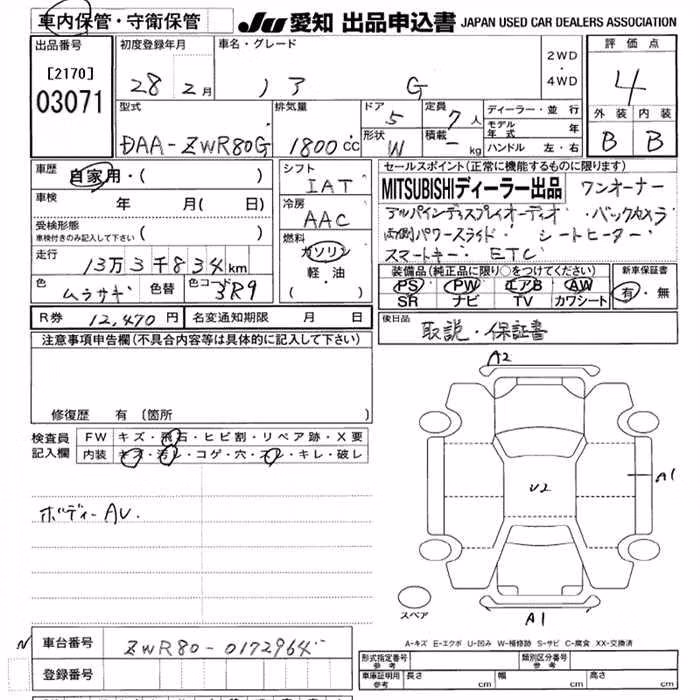 車内保管・守衛保管 JU 愛知 出品申込書 JAPAN USED CAR DEALERS ASSOCIATION
出品番号 初度登録年月 車名・グレード 2WD・4WD 評価点
[2170] 28 2月 ノア G 4
03071 型式 排気量 ドア 定員 ディーラー・並行 外装 内装
DAA-ZWR80G 1800cc 5 7人 モデル年式 年 B B
形状 W 積載 ー kg ハンドル 左・右
車歴 自家用・( ) シフト IAT セールスポイント(正常に機能するものに限ります)
車検 年 月( 日) 冷房 AAC MITSUBISHIディーラー出品 ワンオーナー
受検形態 車検付きのみ記入して下さい ( ) アルパインディスプレイオーディオ バックカメラ
走行 13万3千834km 燃料 ガソリン 軽・油 ( ) 両側パワースライド シートヒーター
スマートキー ETC
色 ムラサキ 色替 色コード 3R9 装備品(純正品に限り○をつけてください) 新車保証書
PS PW エアB AW 有・無
SR ナビ TV カワシート
R券 12,470円 名変通知期限 月 日 後日品 取説・保証書
注意事項申告欄(不具合内容等は具体的に記入して下さい)
修復歴 有 (箇所 )
検査員記入欄 FW キズ・飛石・ヒビ割・リペア跡・X要
内装 キズ・汚レ・コゲ・穴・スレ・キレ・破レ
ボディーAU.
A2
U2
A1
A1
スペア
A-キズ E-エクボ U-凹み W-補修跡 S-サビ C-腐食 XX-交換済
N 車台番号 ZWR80-0172964
登録番号
形式指定番号 参考 類別区分番号 参考
車庫証明用 参考 長さ cm 幅 cm 高さ cm